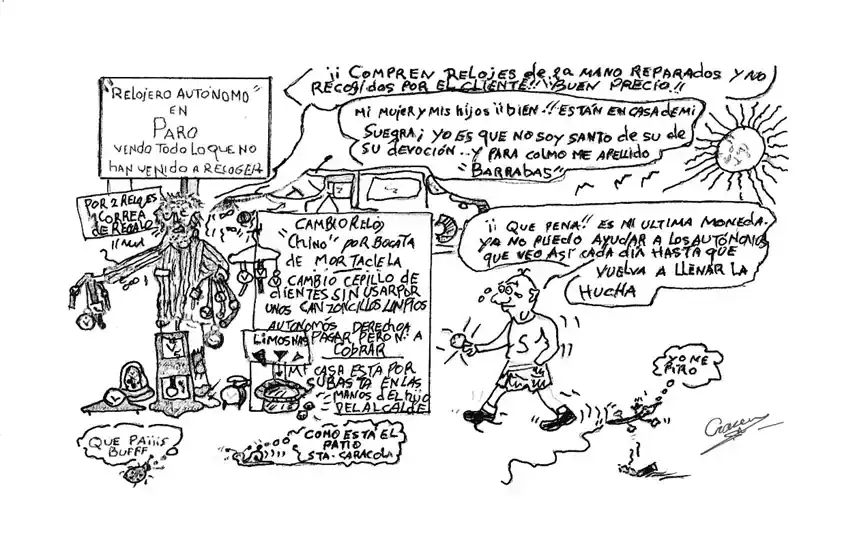 "RELOJERO AUTÓNOMO"
EN
PARO
VENDO TODO LO QUE NO
HAN VENIDO A RELOGER
¡¡ COMPREN RELOJES de 2a MANO REPARADOS Y NO
RECOGIDOS POR EL CLIENTE!! ¡¡BUEN PRECIO!!
Mi MUJER Y Mis HIJOS ¡¡BIEN!! ESTÁN EN CASA DE MI
SUEGRA; YO ES QUE NO SOY SANTO DE SU DE
SU DEVOCIÓN.. Y PARA COLMO ME APELLIDO
"BARRABAS"
POR 2 RELOJES
1 CORREA
DE REGALO
CAMBIO RELOJ
"CHINO" POR BOCATA
DE MORTADELA
CAMBIO CEPILLO DE
DIENTES SIN USAR POR
UNOS CANZONCILLOS LIMPIOS
AUTONOMÓS DERECHO A
PAGAR PERO NO A
COBRAR
LIMOSNAS
Mi CASA ESTA POR
SUBASTA EN LAS
MANOS DEL HIJO
DEL ALCALDE
¡¡ QUE PENA!! ES MI ULTIMA MONEDA.
YA NO PUEDO AYUDAR A LOS AUTÓNOMOS
QUE VEO ASÍ CADA DÍA HASTA QUE
VUELVA A LLENAR LA
HUCHA
S
YO ME
PIRO
QUE PAIIIS
BUFFF
COMO ESTÁ EL
PATIO
STA. CARACOLA